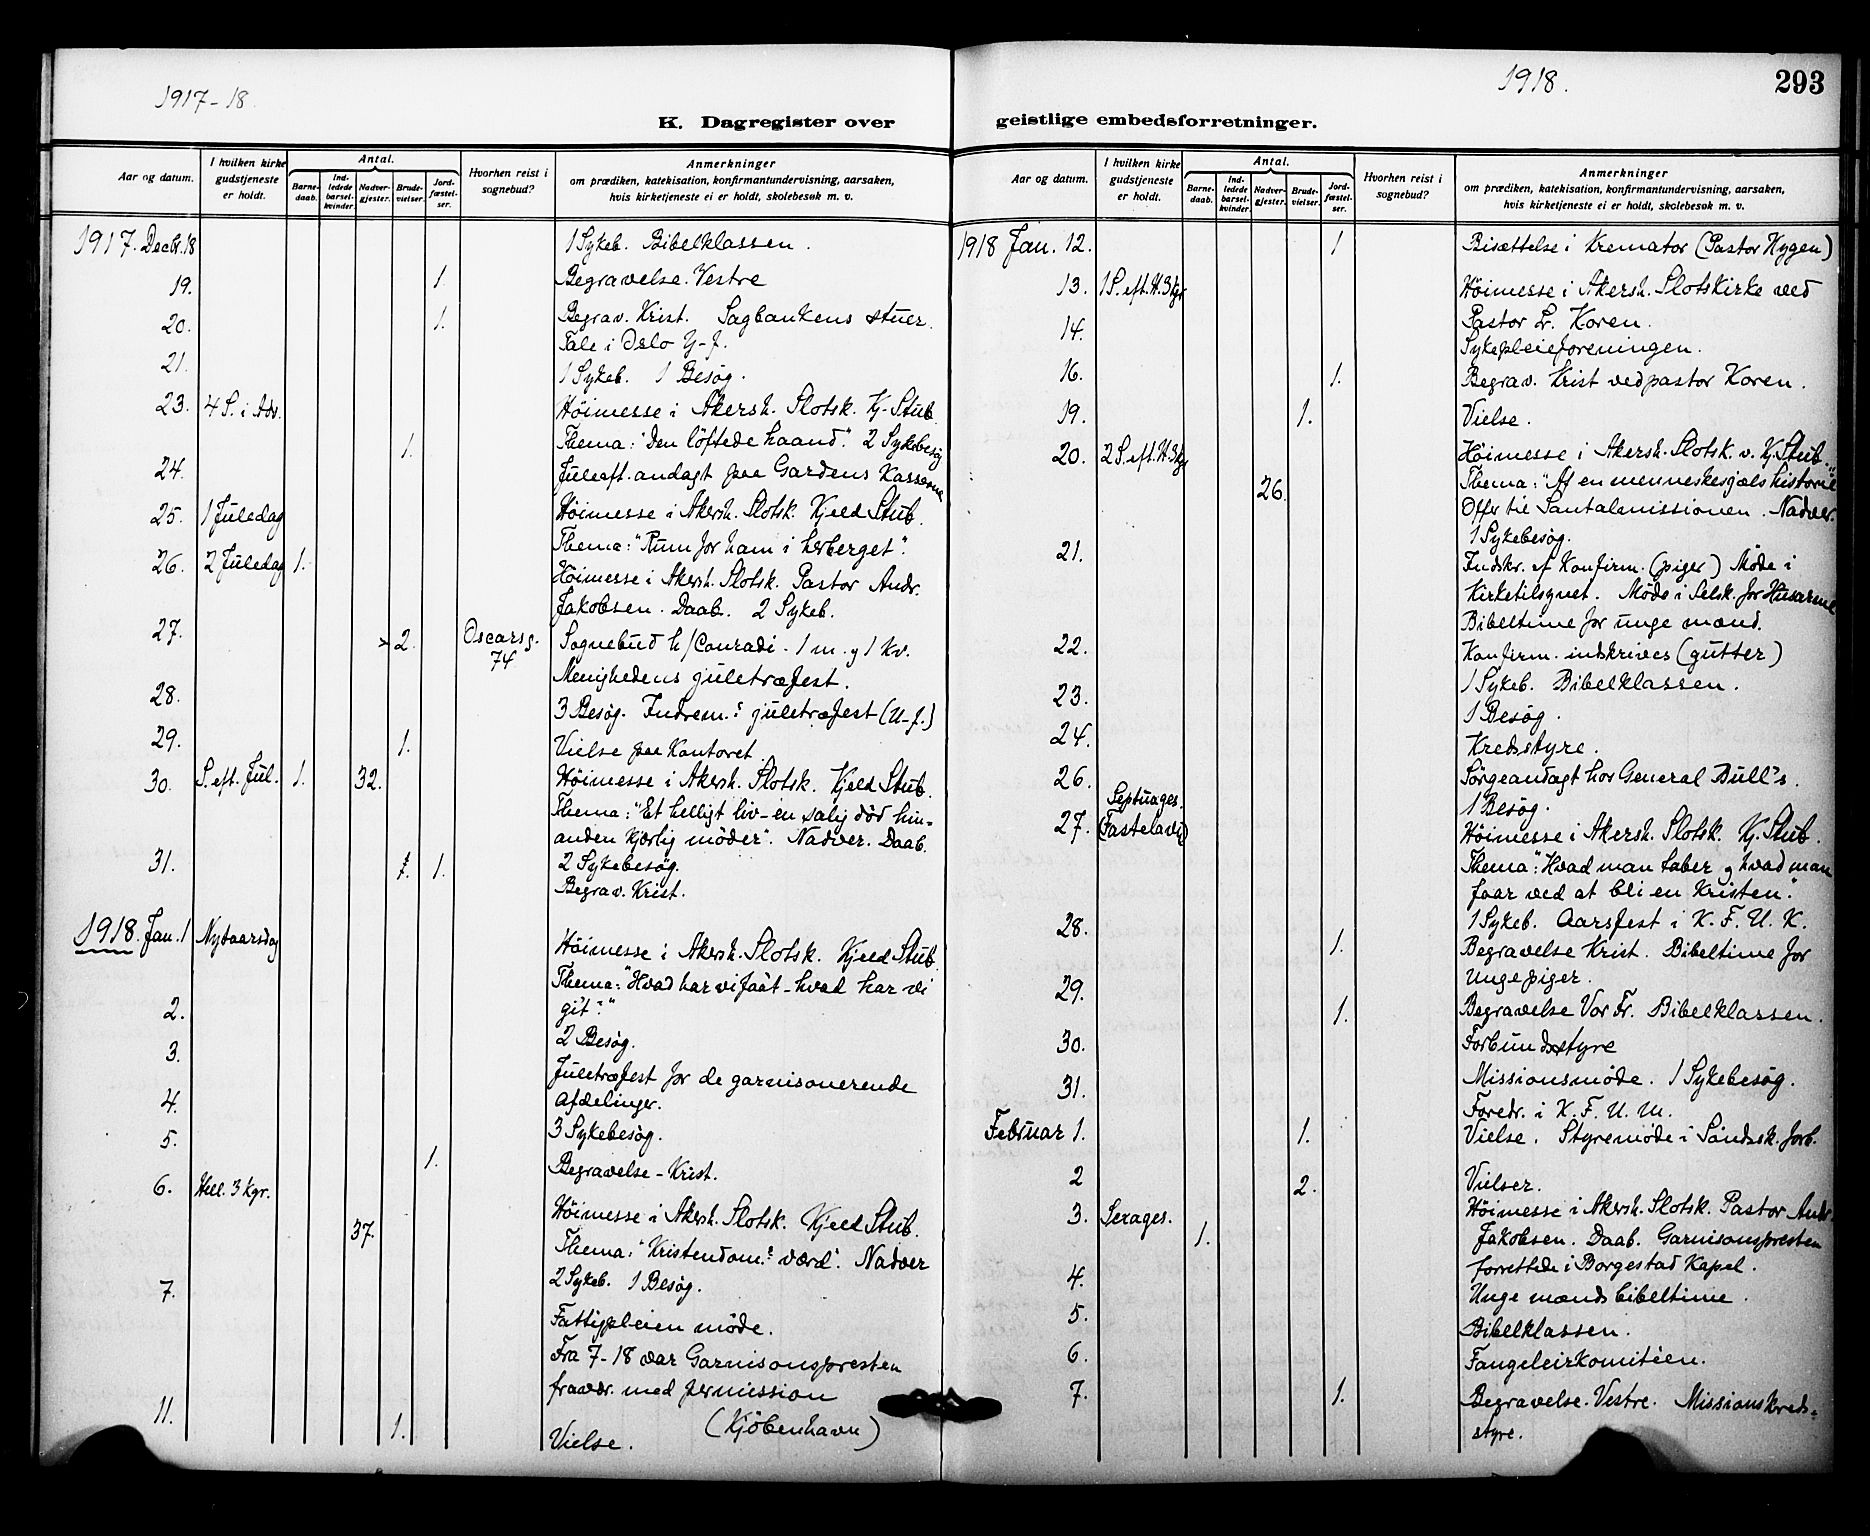 1917-18
K. Dagregister over
Aar og datum.
I hvilken kirke gudstjeneste er holdt.
Antal.
Barne-daab.
Ind-ledede barsel-kvinder.
Nadver-gjester.
Brude-vielser.
Jord-fæstel-ser.
Hvorhen reist i sognebud?
Anmerkninger
om prædiken, katekisation, konfirmantundervisning, aarsaken,
hvis kirketjeneste ei er holdt, skolebesøk m. v.
1917. Decbr. 18 1 Sykeb. Bibelklassen.
19. 1. Begravelse. Vestre
20. 1. Begrav. Krist. Sagbankens stuer.
Tale i Oslo Y-f.
21. 1 Sykeb. 1 Besøg.
23. 4 S. i Adv. Höimesse i Akersh. Slotsk. Kj. Stub
1. Thema: "Den löftede haand". 2 Sykebesög
24. Juleaft. andagt paa Gardens Kasserne
25. 1 Juledag Höimesse i Akersh. Slotsk. Kjeld Stub.
Thema: "Rum for ham i herberget".
26. 2 Juledag 1. Höimesse i Akersh. Slotsk. Pastor Andr.
Jakobsen. Daab. 2 Sykeb.
27. 2. Oscarsg. 74 Sognebud h/Conradi. 1 m. g 1 kv.
Menighedens juletræfest.
28. 3 Besøg. Indrem.s juletræfest (U-f.)
29. 1. Vielse paa Kontoret
30. S. eft. Jul. 1. 32. Höimesse i Akersh. Slotsk. Kjeld Stub.
Thema: "Et helligt liv - en salig död hin-
anden kjærlig möder". Nadver. Daab.
31. 1. 1. 2 Sykebesøg.
Begrav. Krist.
1918. Jan. 1 Nytaarsdag Höimesse i Akersh. Slotsk. Kjeld Stub
Thema: "Hvad har vi faat - hvad har vi
git?"
2. 2 Besøg.
3. Juletræfest for de garnisonerende
Afdelinger.
4. 3 Sykebesøg.
5. 1. Begravelse - Krist.
6. Hell. 3 Kgr. 37. Höimesse i Akersh. Slotsk. Kjeld Stub.
Thema: "Kristendom.s værd". Nadver
2 Sykeb. 1 Besøg.
7. Fattigpleien möde.
Fra 7-18 var Garnisonspresten
fravær. med permission
(Kjöbenhavn)
11. 1. Vielse.
1918.
293
geistlige embedsforretninger.
Aar og datum.
I hvilken kirke gudstjeneste er holdt.
Antal.
Barne-daab.
Ind-ledede barsel-kvinder.
Nadver-gjester.
Brude-vielser.
Jord-fæstel-ser.
Hvorhen reist i sognebud?
Anmerkninger
om prædiken, katekisation, konfirmantundervisning, aarsaken,
hvis kirketjeneste ei er holdt, skolebesøk m. v.
1918 Jan. 12. 1 Bisættelse i Kremator (Pastor Hygen)
13. 1 S. eft. H. 3 kgr Höimesse i Akersh. Slotskirke ved
Pastor Lr. Koren.
14. Sykepleieforeningen.
16. 1. Begrav. Krist ved pastor Koren.
19. 1. Vielse.
20. 2 S. eft. H. 3 kg Höimesse i Akersh. Slotsk. v. Kj. Stub.
26. Thema: "Af en menneskesjæls historie"
Offer til Santalmissionen. Nadver.
1 Sykebesøg.
21. Indskr. af Konfirm. (piger) Möde i
Kirketilsynet. Möde i Selsk. for Husarme
Bibeltime for unge mænd.
22. Konfirm. indskrives (gutter)
1 Sykeb. Bibelklassen.
23. 1 Besøg.
24. Kredsstyre.
26. Sørgeandagt hos General Bull's.
1 Besøg.
27. Septuages. (Fastelavn) Höimesse i Akersh. Slotsk. Kj. Stub.
Thema: "Hvad man taber g hvad man
faar ved at bli en Kristen".
28. 1 Sykeb. Aarsfest i K. F. U. K.
1. Begravelse Krist. Bibeltime for
Ungepiger.
29. 1. Begravelse Vor Fr. Bibelklassen.
30. Forbundsstyre
Missionsmöde. 1 Sykebesøg.
31. Foredr. i K. F. U. M.
Februar 1. 1. Vielse. Styremöde i Söndssk. forb.
2 2. Vielser.
3. Sexages. 1. Höimesse i Akersh. Slotsk. Pastor Andr.
Jakobsen. Daab. Garnisonspresten
forrettede i Borgestad Kapel.
4. Unge mænds bibeltime.
5. Bibelklassen.
6. Fangeleirkomitéen.
7. 1. Begravelse. Vestre. Missionskreds-
styre.